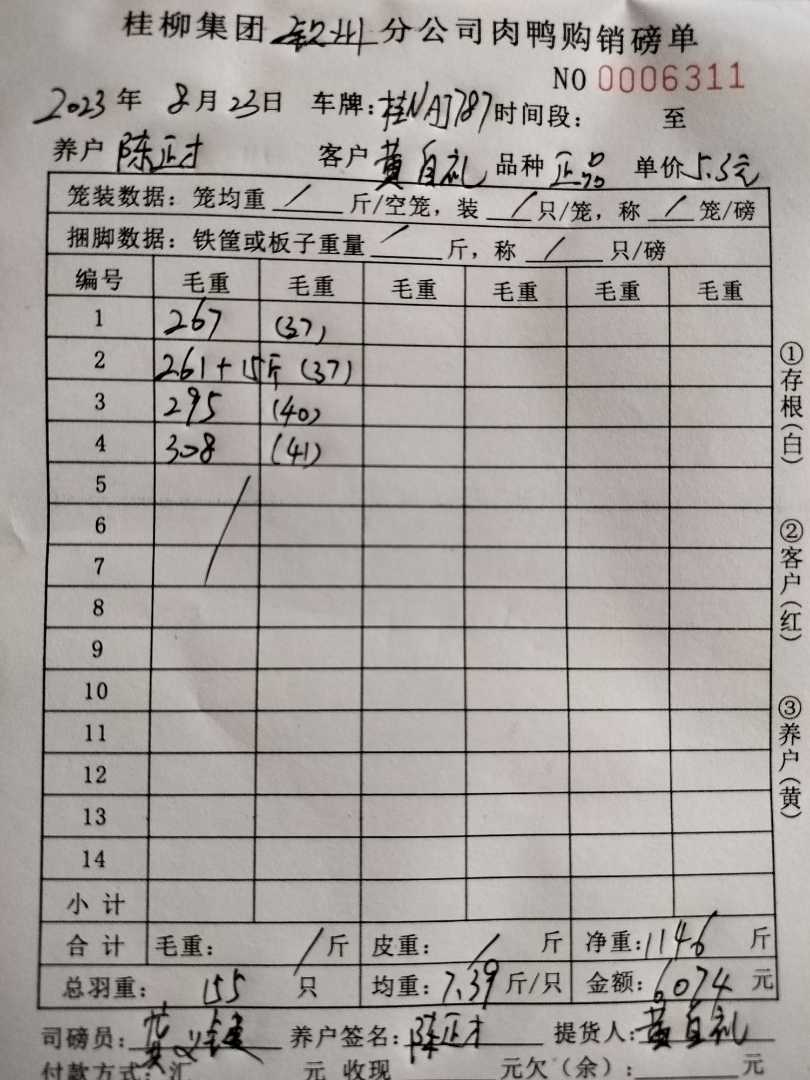 桂柳集团 钦州 分公司肉鸭购销磅单
NO 0006311
2023年 8月23日 车牌:桂NAJ787 时间段: 至
养户 陈正才 客户 黄自礼 品种 正品 单价 5.3元
笼装数据: 笼均重 / 斤/空笼, 装 / 只/笼, 称 / 笼/磅
捆脚数据: 铁筐或板子重量 / 斤, 称 / 只/磅
编号 毛重 毛重 毛重 毛重 毛重 毛重
1 267 (37)
2 261+15斤 (37)
3 295 (40)
4 308 (41)
5
6
7
8
9
10
11
12
13
14
小计
合计 毛重: / 斤 皮重: / 斤 净重:1146 斤
总羽重: 155 只 均重:7.39斤/只 金额:6074元
司磅员: 养户签名:陈正才 提货人:黄自礼
付款方式:汇 元 收现 元欠(余): 元
①存根(白)
②客户(红)
③养户(黄)